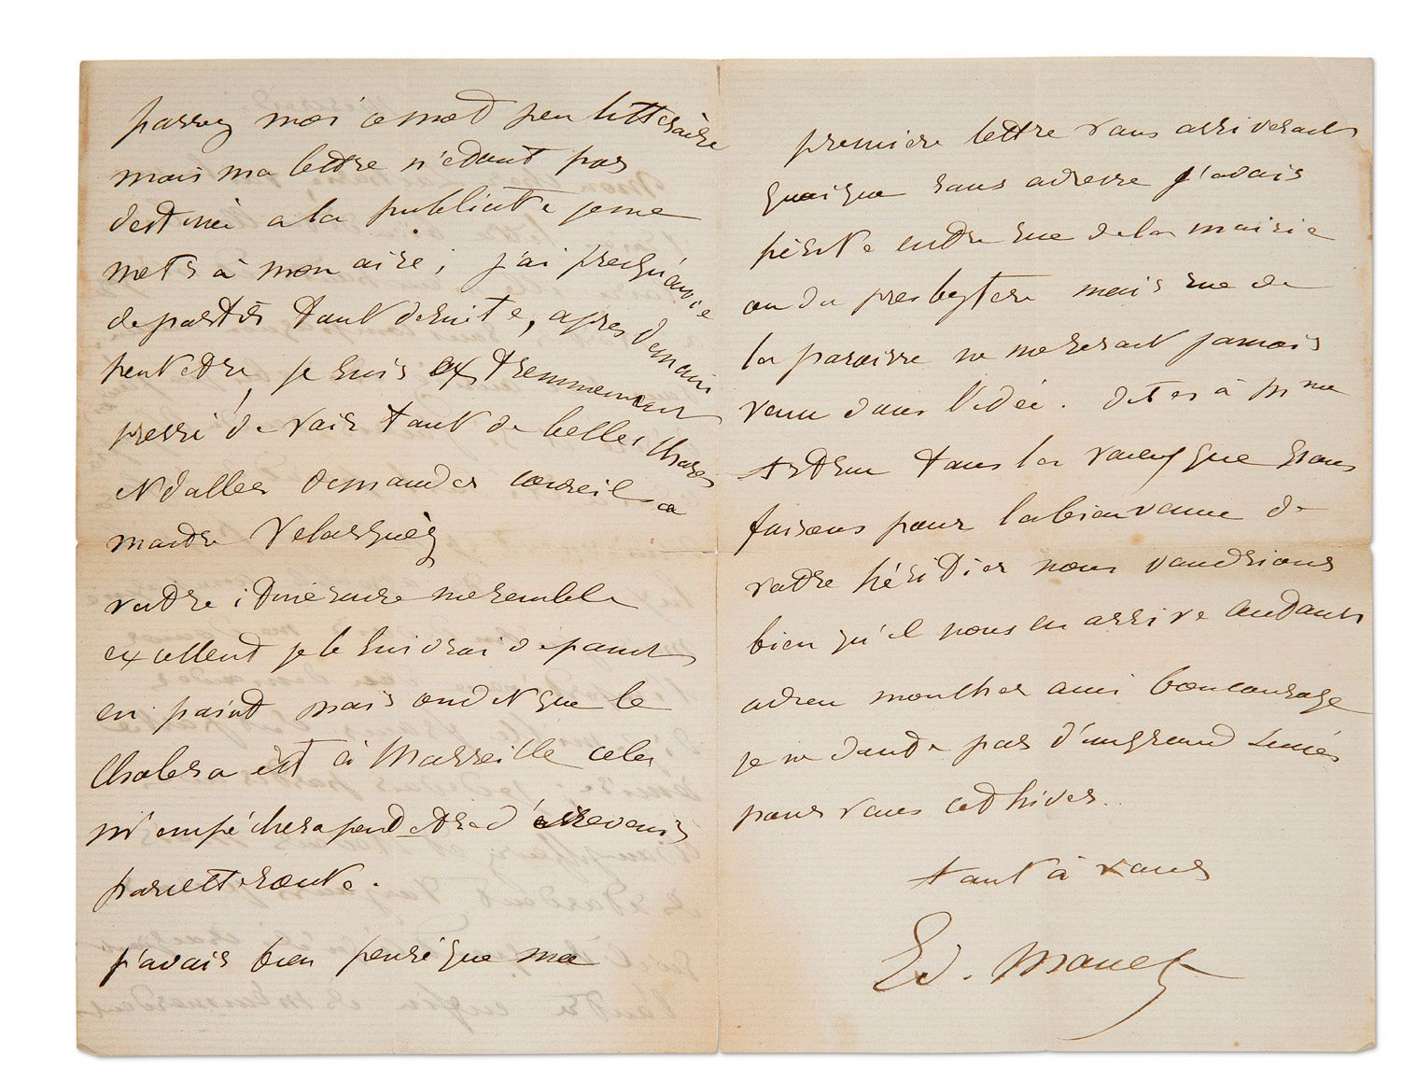 passez moi ce mot peu littéraire
mais ma lettre n'etant pas
destiné a la publicité je me
mets à mon aise, j'ai presqu'envie
de partir tout de suite, après demain
peut etre, je suis extremmement
pressé de voir tant de belles choses
et d'aller demander conseil a
maitre Velasquèz
votre itineraire me semble
excellent je le suivrai de point
en point mais on dit que le
Cholera est à Marseille cela
m'empéchera peut etre d'en revenir
par cette route.
j'avais bien pensé que ma
premiere lettre vous arriverait
quoique sans adresse j'avais
hésité entre rue de la mairie
ou du presbytere mais rue de
la paroisse ne me serait jamais
venu dans l'idée. dites à Mme
Astruc tous les voeux que nous
faisons pour la bienvenue de
votre héritier nous voudrions
bien qu'il nous en arrive autant
adieu mon cher ami bon courage
je ne doute pas d'un grand succés
pour vous cet hiver.
tout à vous
Ed. Manet